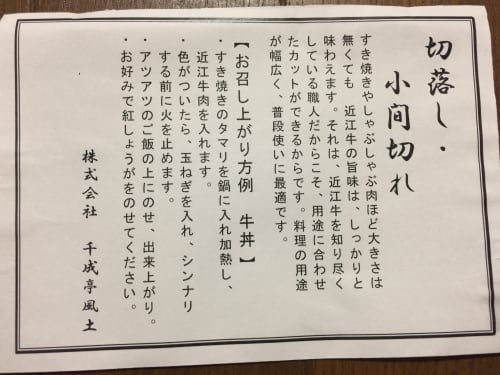 切落し・
小間切れ
すき焼きやしゃぶしゃぶ肉ほど大きさは
無くても　近江牛の旨味は、しっかりと
味わえます。それは、近江牛を知り尽く
している職人だからこそ、用途に合わせ
たカットができるからです。料理の用途
が幅広く、普段使いに最適です。
【お召し上がり方例　牛丼】
・すき焼きのタマリを鍋に入れ加熱し、
近江牛肉を入れます。
・色がついたら、玉ねぎを入れ、シンナリ
する前に火を止めます。
・アツアツのご飯の上にのせ、出来上がり。
・お好みで紅しょうがをのせてください。
株式会社　千成亭風土